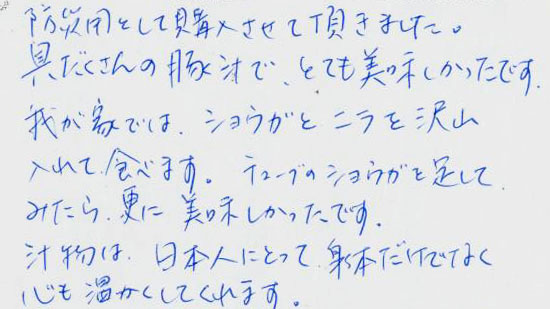 防災用として購入させて頂きました。
具だくさんの豚汁で、とても美味しかったです.
我が家では、ショウガとニラを沢山
入れて、食べます。チューブのショウガを足して
みたら、更に美味しかったです.
汁物は、日本人にとって、身体だけでなく
心も温かくしてくれます。